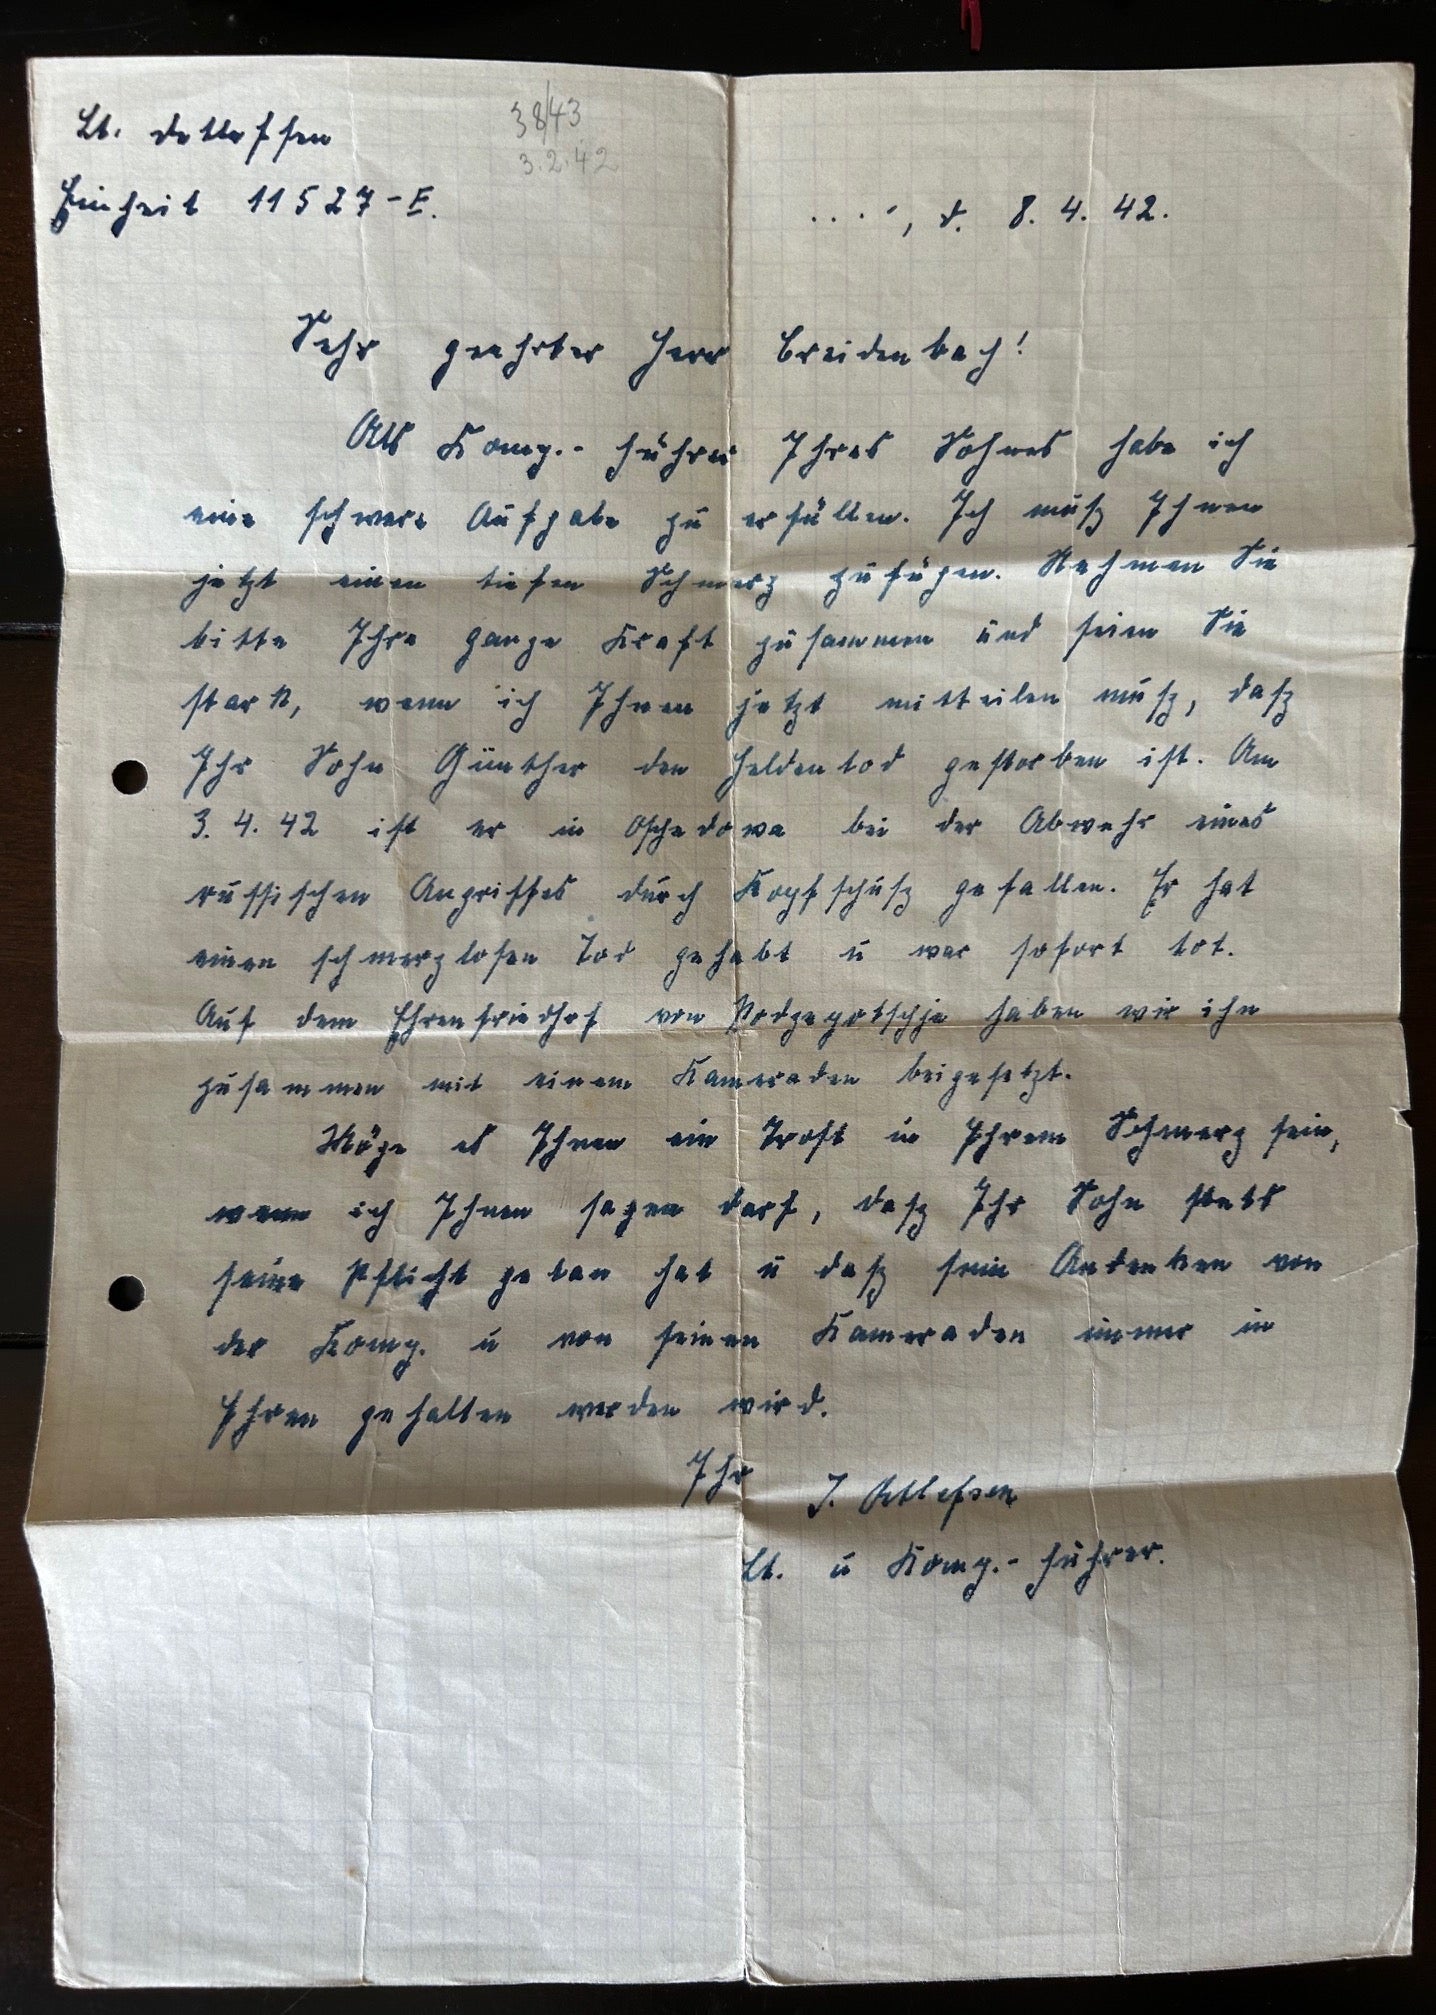 Lt. Detleffsen
38/43
3.2.42
Einheit 11527-E.
...., d. 8. 4. 42.
Sehr geehrter Herr Breidenbach!
Als Komp.- Führer Ihres Sohnes habe ich
eine schwere Aufgabe zu erfüllen. Ich muß Ihnen
jetzt einen tiefen Schmerz zufügen. Nehmen Sie
bitte Ihre ganze Kraft zusammen und seien Sie
stark, wenn ich Ihnen jetzt mitteilen muß, daß
Ihr Sohn Günther den Heldentod gestorben ist. Am
3. 4. 42 ist er in Oschedowa bei der Abwehr eines
russischen Angriffes durch Kopfschuß gefallen. Er hat
einen schmerzlosen Tod gehabt u war sofort tot.
Auf dem Ehrenfriedhof von haben wir ihn
zusammen mit einem Kameraden beigesetzt.
Möge es Ihnen ein Trost in Ihrem Schmerz sein,
wenn ich Ihnen sagen darf, daß Ihr Sohn stets
seine Pflicht getan hat u daß sein Andenken von
der Komp. u von seinen Kameraden immer in
Ehren gehalten werden wird.
Ihr J. Detlefsen
Lt. u Komp.- Führer.